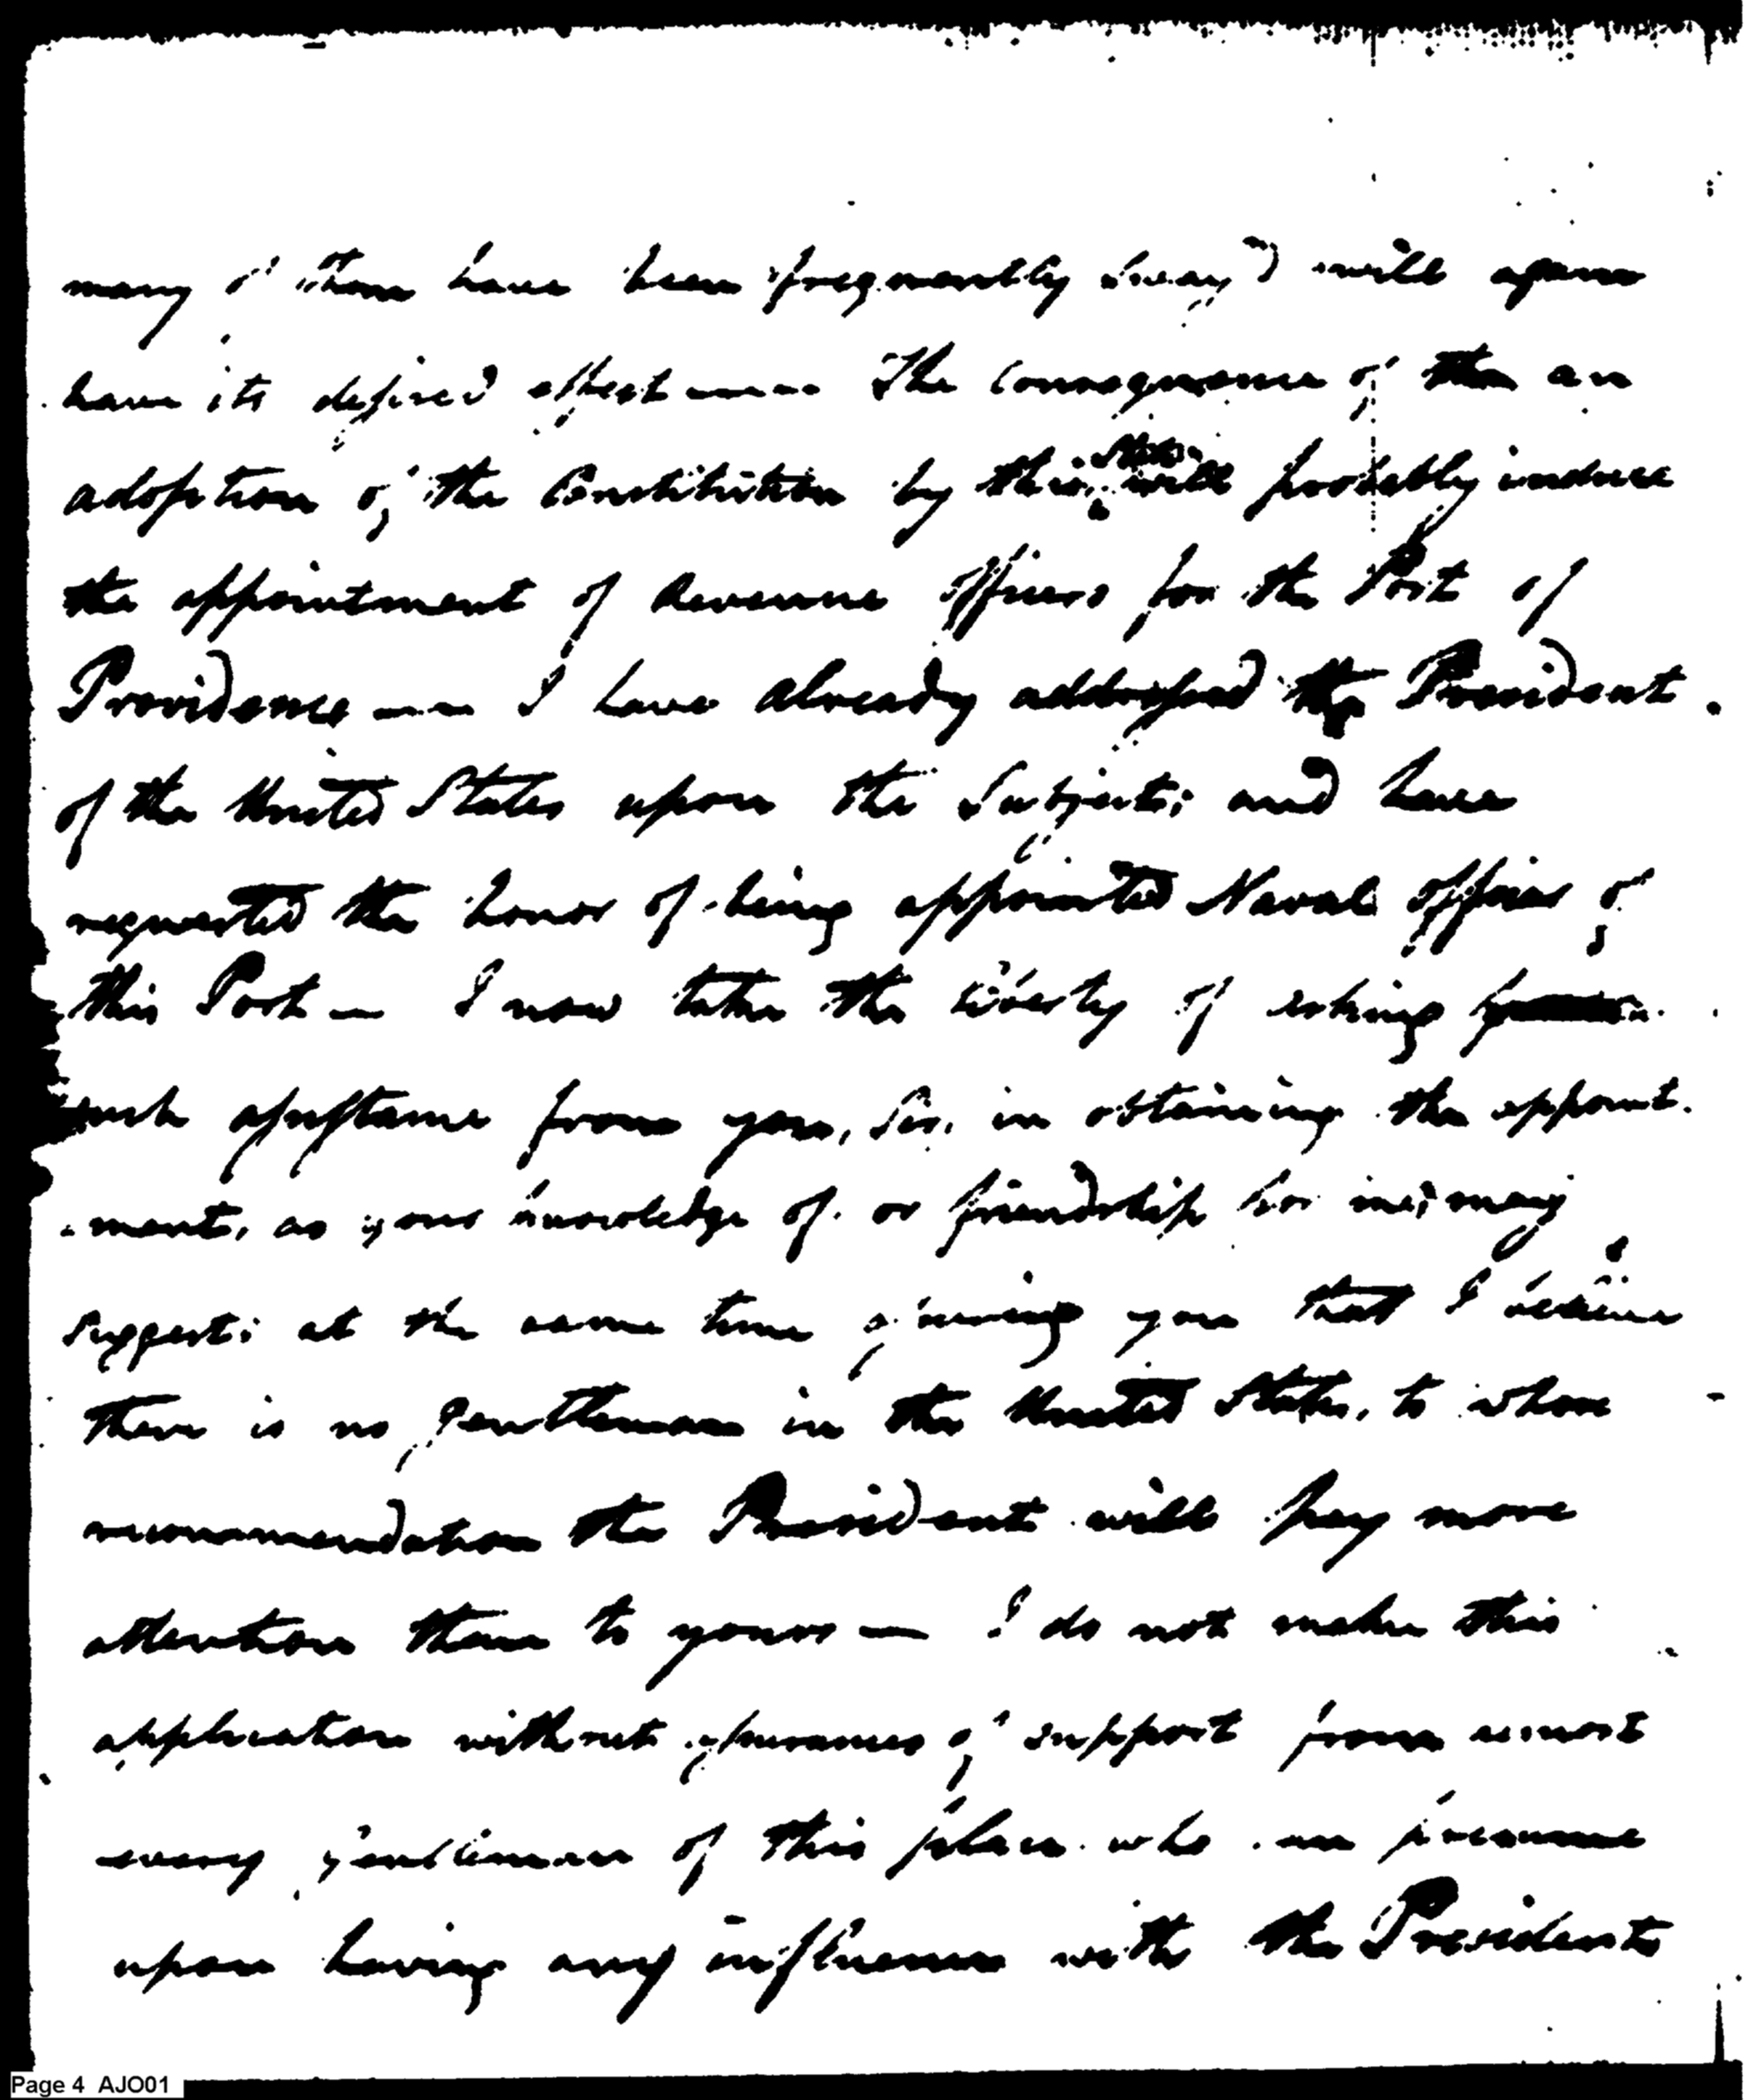 many of them have been frequently sway'd will again
have its desired effect —— The consequence of then an
adoption of the Constitution by this State, will probably induce
the appointment of Revenue officers for the Port of
Providence —— I have already addressed the President
of the United States upon the Subject; and have
requested the honor of being appointed Naval officer of
this Port — I now take the liberty of asking
such assistance from you, Sir, in obtaining the appoint-
-ment, as your knowledge of or friendship for me, may
suggest: at the same time assuring you that I believe
there is no gentleman in the United States, to whose
recommendation the President will pay more
attention than to yours — I do not make this
application without assurances of support from almost
every gentleman of this place who can presume
upon having any influence with the President
Page 4 AJO01